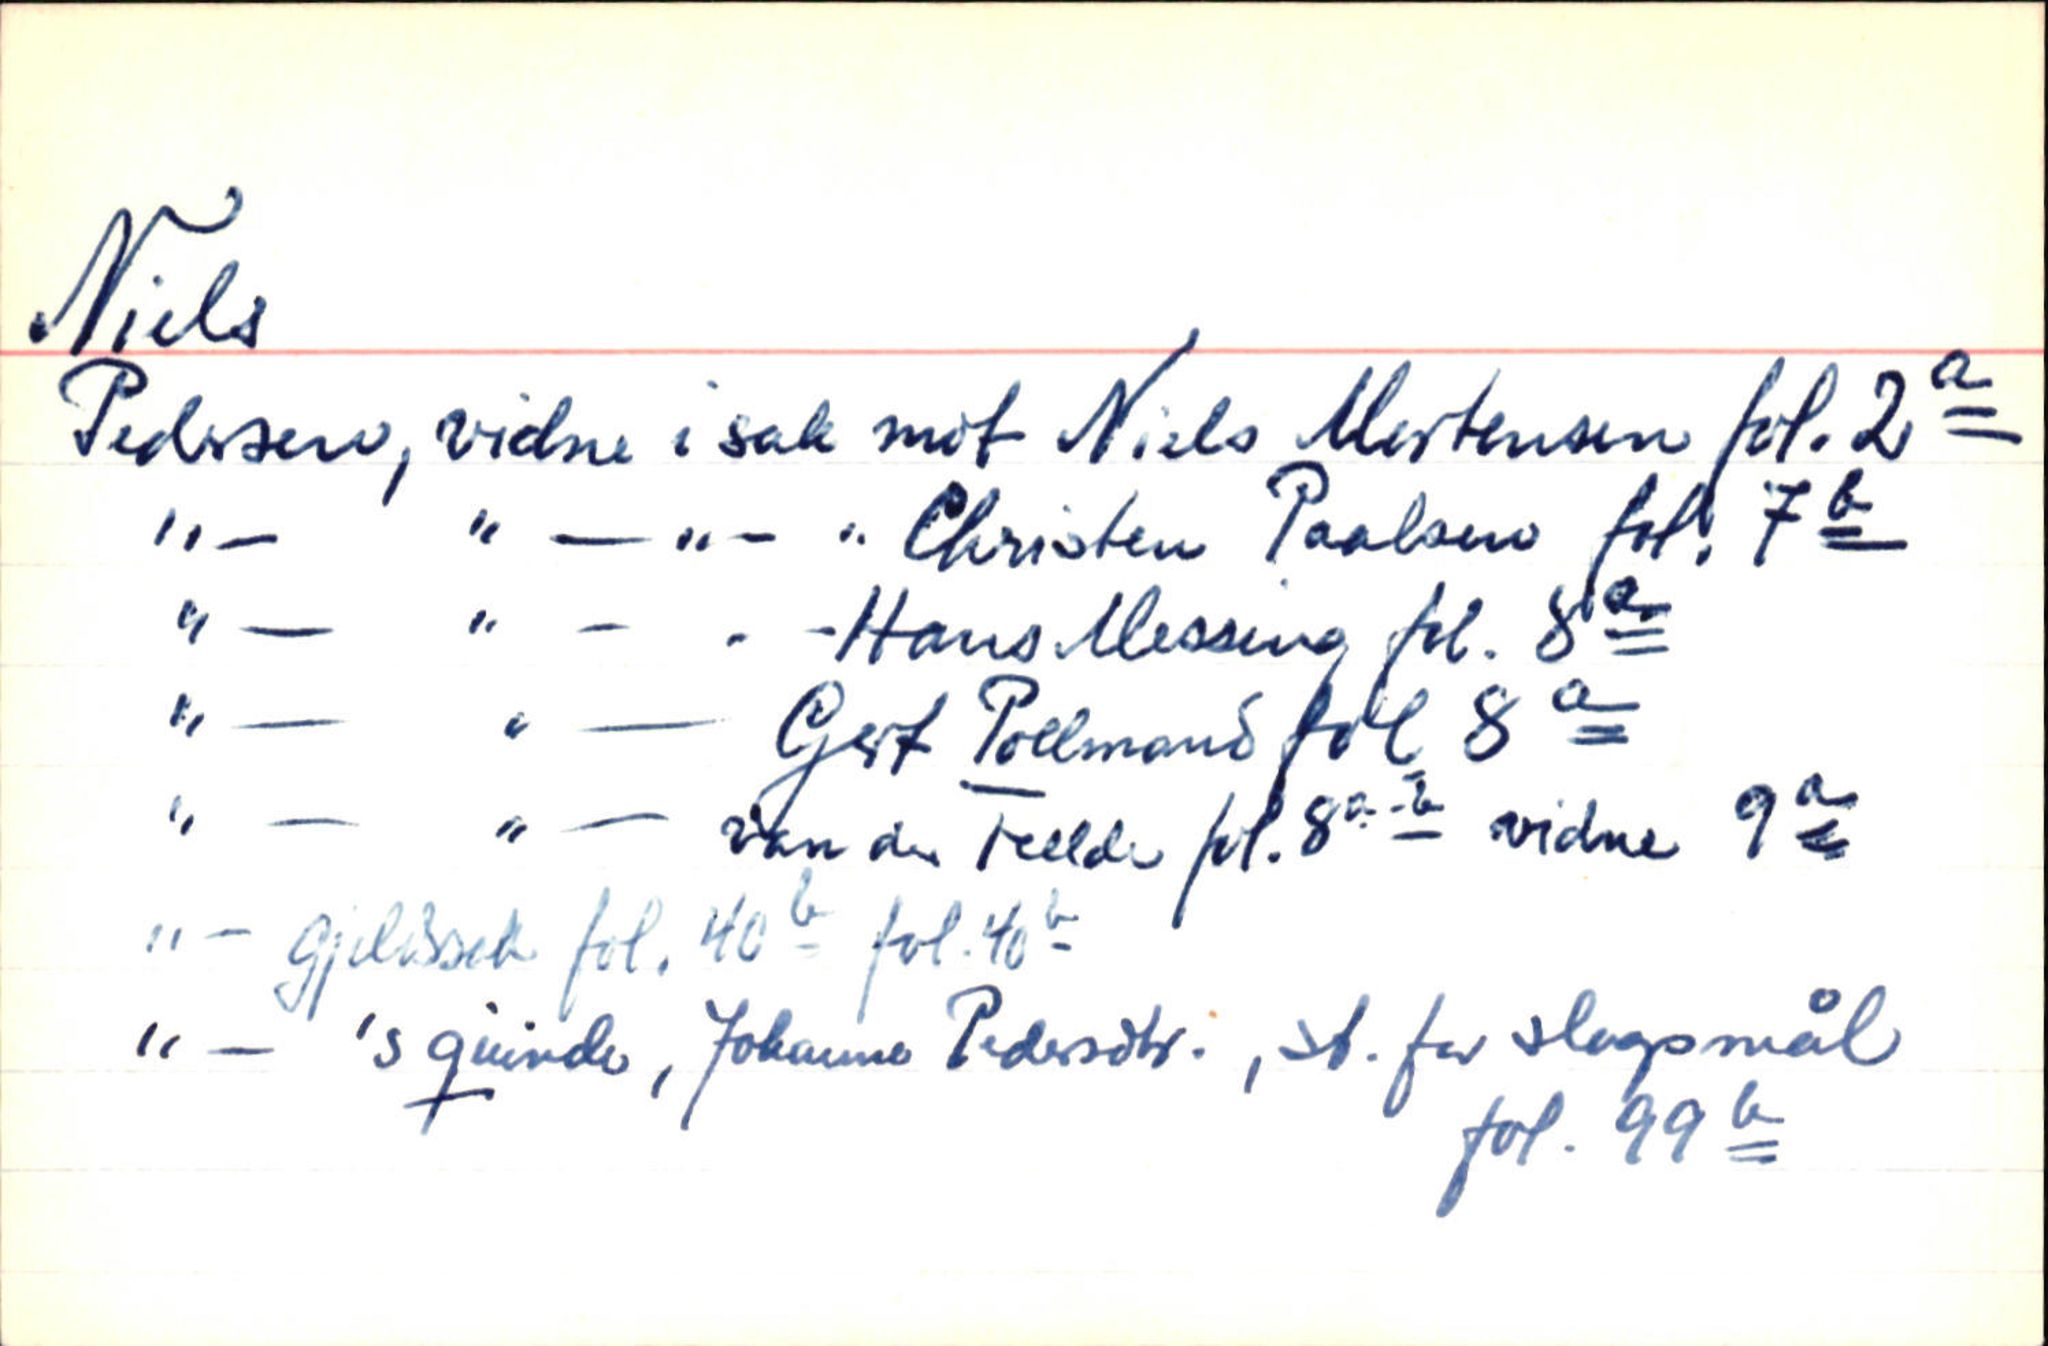 Niels
Pedersen, vidne i sak mot Niels Mertensen fol. 2a
"— " — " — " Christen Paalsen fol. 7b
" — " — - - Hans Messing fol. 8a
" — " — Gert Pollmand fol. 8a
" — " — van der Fellde fol. 8a-b vidne 9a
" — Gjeldssak fol. 40b fol. 40b
" — 's quinde, Johanne Pedersdtr., st. for slagsmål
fol. 99b